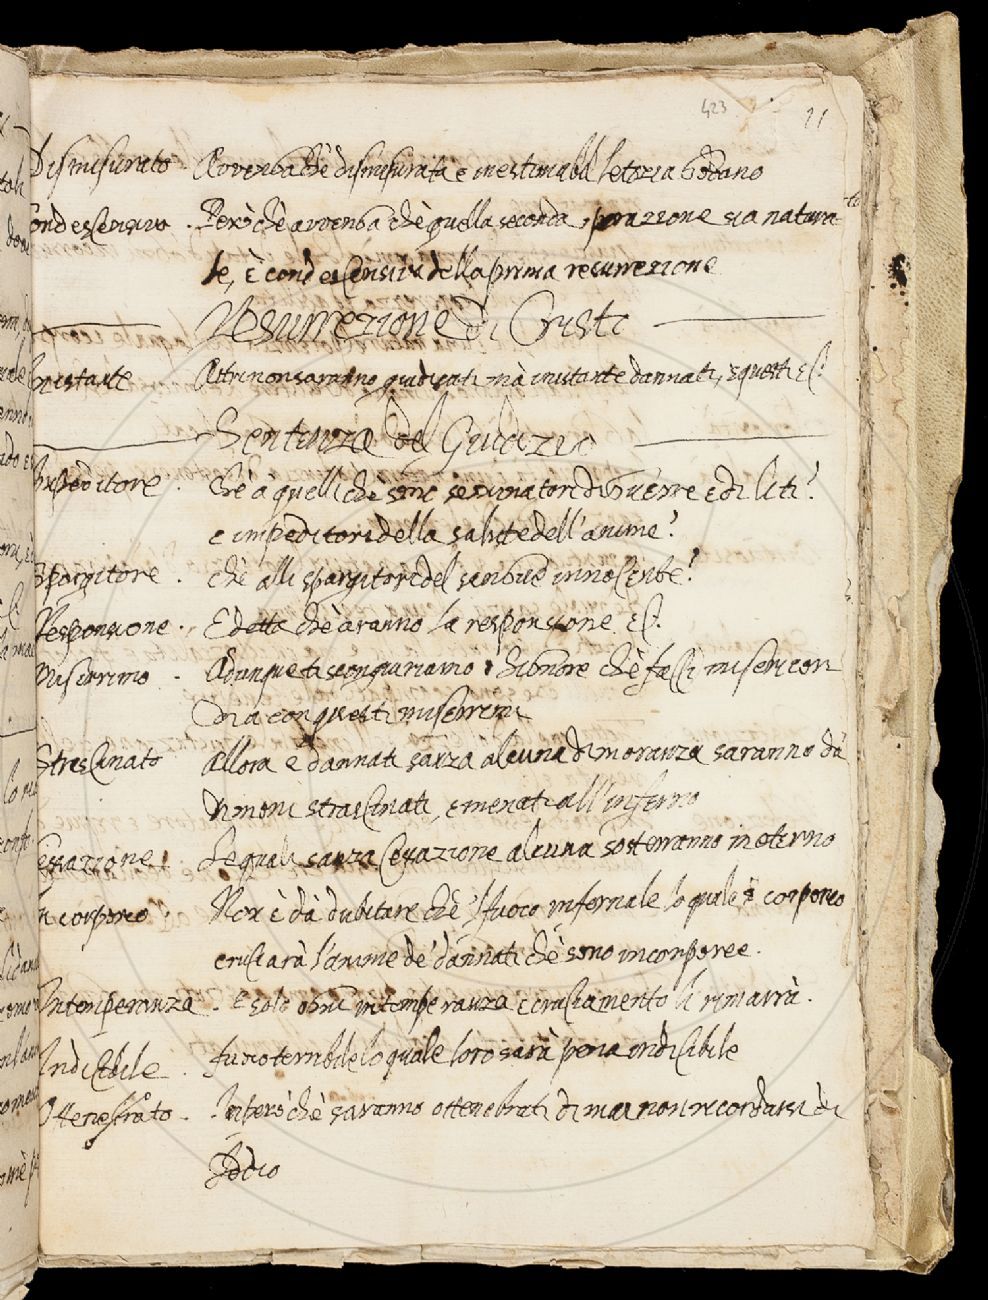 423
21
Dismisurato Avvengachè dismisurata e inestimabile letizia
Condescensivo . Però chè avvenga chè quella seconda sia natura
le, è condescensiva della prima resurrezione
Resurrezione di Cristo
Instante Altri non saranno giudicati mà instante dannati, e questi
Sentenza del Giudizio
Impeditore . Chè à quelli chè sono seminatori di Guerre e di liti?
e impeditori della salute dell'anime?
Spargitore . chè alli spargitori del sangue innocente?
Responsione . E detta chè àranno la responsione
Miserrimo . Adunque ti scongiuriamo Signore chè facci misericor
dia con questi miserrimi
Strascinato allora e dannati sanza alcuna dimoranza saranno dà
Dimoni strascinati, e menati all'inferno
Cessazione Le quali sanza cessazione alcuna sosterranno in eterno
Incorporeo . Non è dà dubitare chè 'l fuoco infernale lo quale è corporeo
cruciarà l'anime de' dannati chè sono incorporee .
Intemperanza . E solo ogni intemperanza e cruciamento li rimarrà .
Indicibile . fuoco terribile lo quale loro sarà pena indicibile
Ottenebrato . Imperò chè saranno ottenebrati di mai non ricordarsi di
Iddio